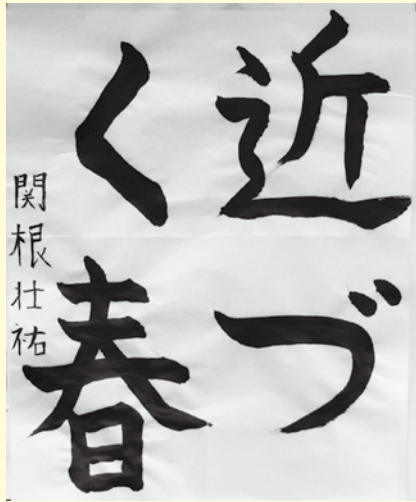 近づ
く春
関根壮祐